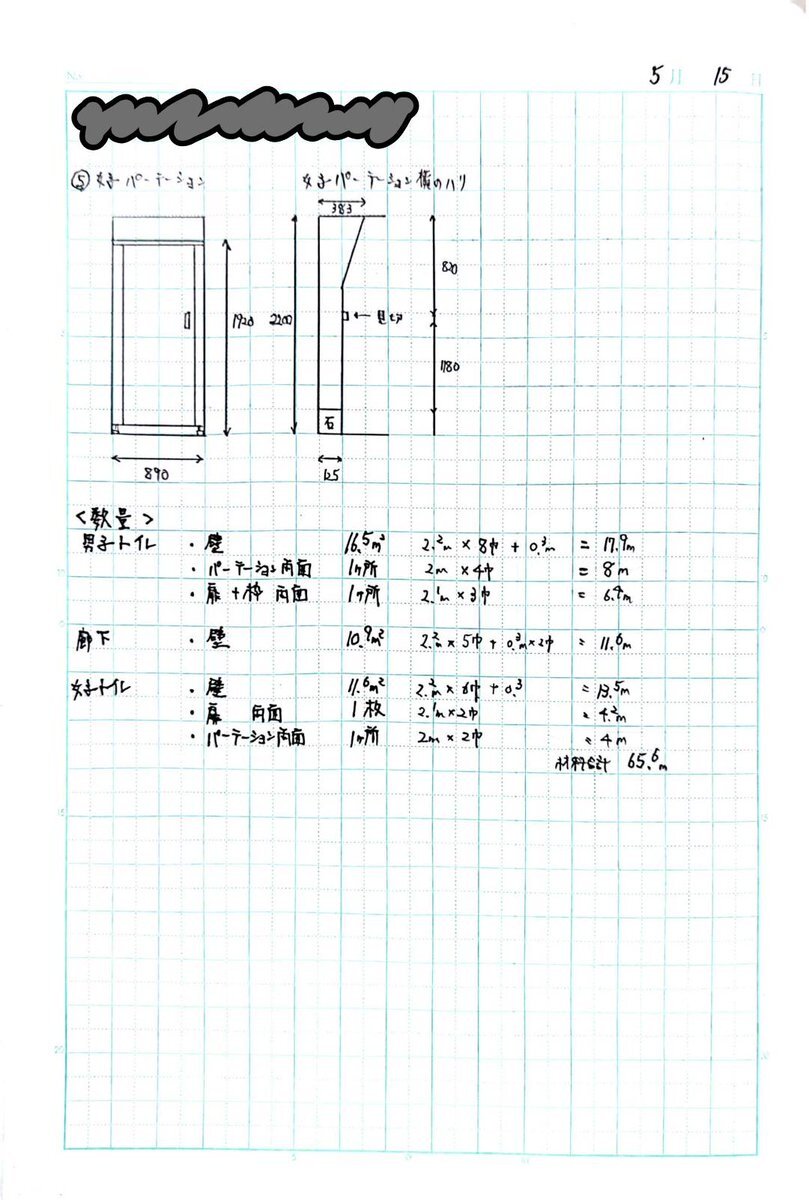 No.
5月 15日
⑤女子パーテーション
女子パーテーション横のハリ
383
820
1920
2200
1180
石
890
125
<数量>
男子トイレ ・壁 16.5m² 2.2m × 8巾 + 0.3m = 17.9m
・パーテーション両面 1ヶ所 2m × 4巾 = 8m
・扉+枠 両面 1ヶ所 2.1m × 3巾 = 6.4m
廊下 ・壁 10.9m² 2.2m × 5巾 + 0.3m × 2巾 = 11.6m
女子トイレ ・壁 11.6m² 2.2m × 6巾 + 0.3 = 13.5m
・扉 両面 1枚 2.1m × 2巾 = 4.2m
・パーテーション両面 1ヶ所 2m × 2巾 = 4m
材料合計 65.6m